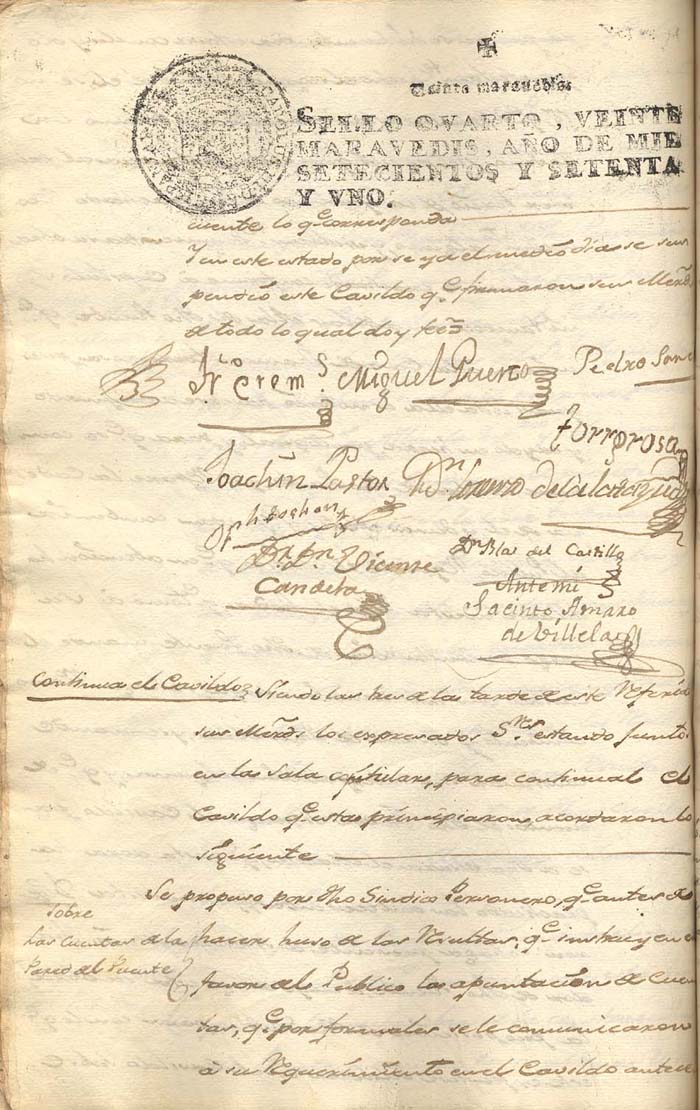 Veinte maravedis.
SELLO QVARTO, VEINTE
MARAVEDIS, AÑO DE MIL
SETECIENTOS Y SETENTA
Y VNO.
cuente lo qe. corresponda
Y en este estado por se ya el medio dia se sus
pendió este Cavildo qe. firmaron sus Mrds.
de todo lo qual doy fee
Miguel Puerto
Pedro
Torrerosa
Joachin Pastor
Dn. Lorenzo de la
Dr. Dn. Vicente
Candela
Dn. Blas del Castillo
Antemi
Jacinto Amaro
de Villela
Continua el Cavildo
Siendo las tres de la tarde de este
sus Mrds. los expresados Sres. estando juntos
en la Sala capitular, para continual el
Cavildo qe. estas principiaron, acordaron lo
siguiente
Sobre
las cuentas de la
Pared del Puente
Se propuso por dho Sindico Personero, qe. antes de
hacer huso de las Resultas, qe. instruyen en
favor del Publico las apuntacion de cuen
tas, qe. por formales se le comunicaron
a su Requerimiento en el Cavildo antece